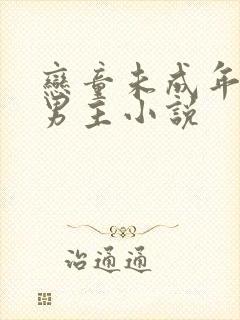 戀童未成年
男主小說
治通通